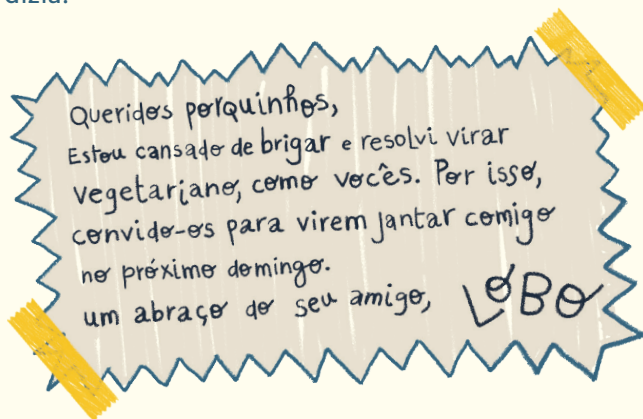 dizia:
Queridos porquinhos,
Estou cansado de brigar e resolvi virar
vegetariano, como vocês. Por isso,
convido-os para virem jantar comigo
no próximo domingo.
um abraço do seu amigo, LOBO